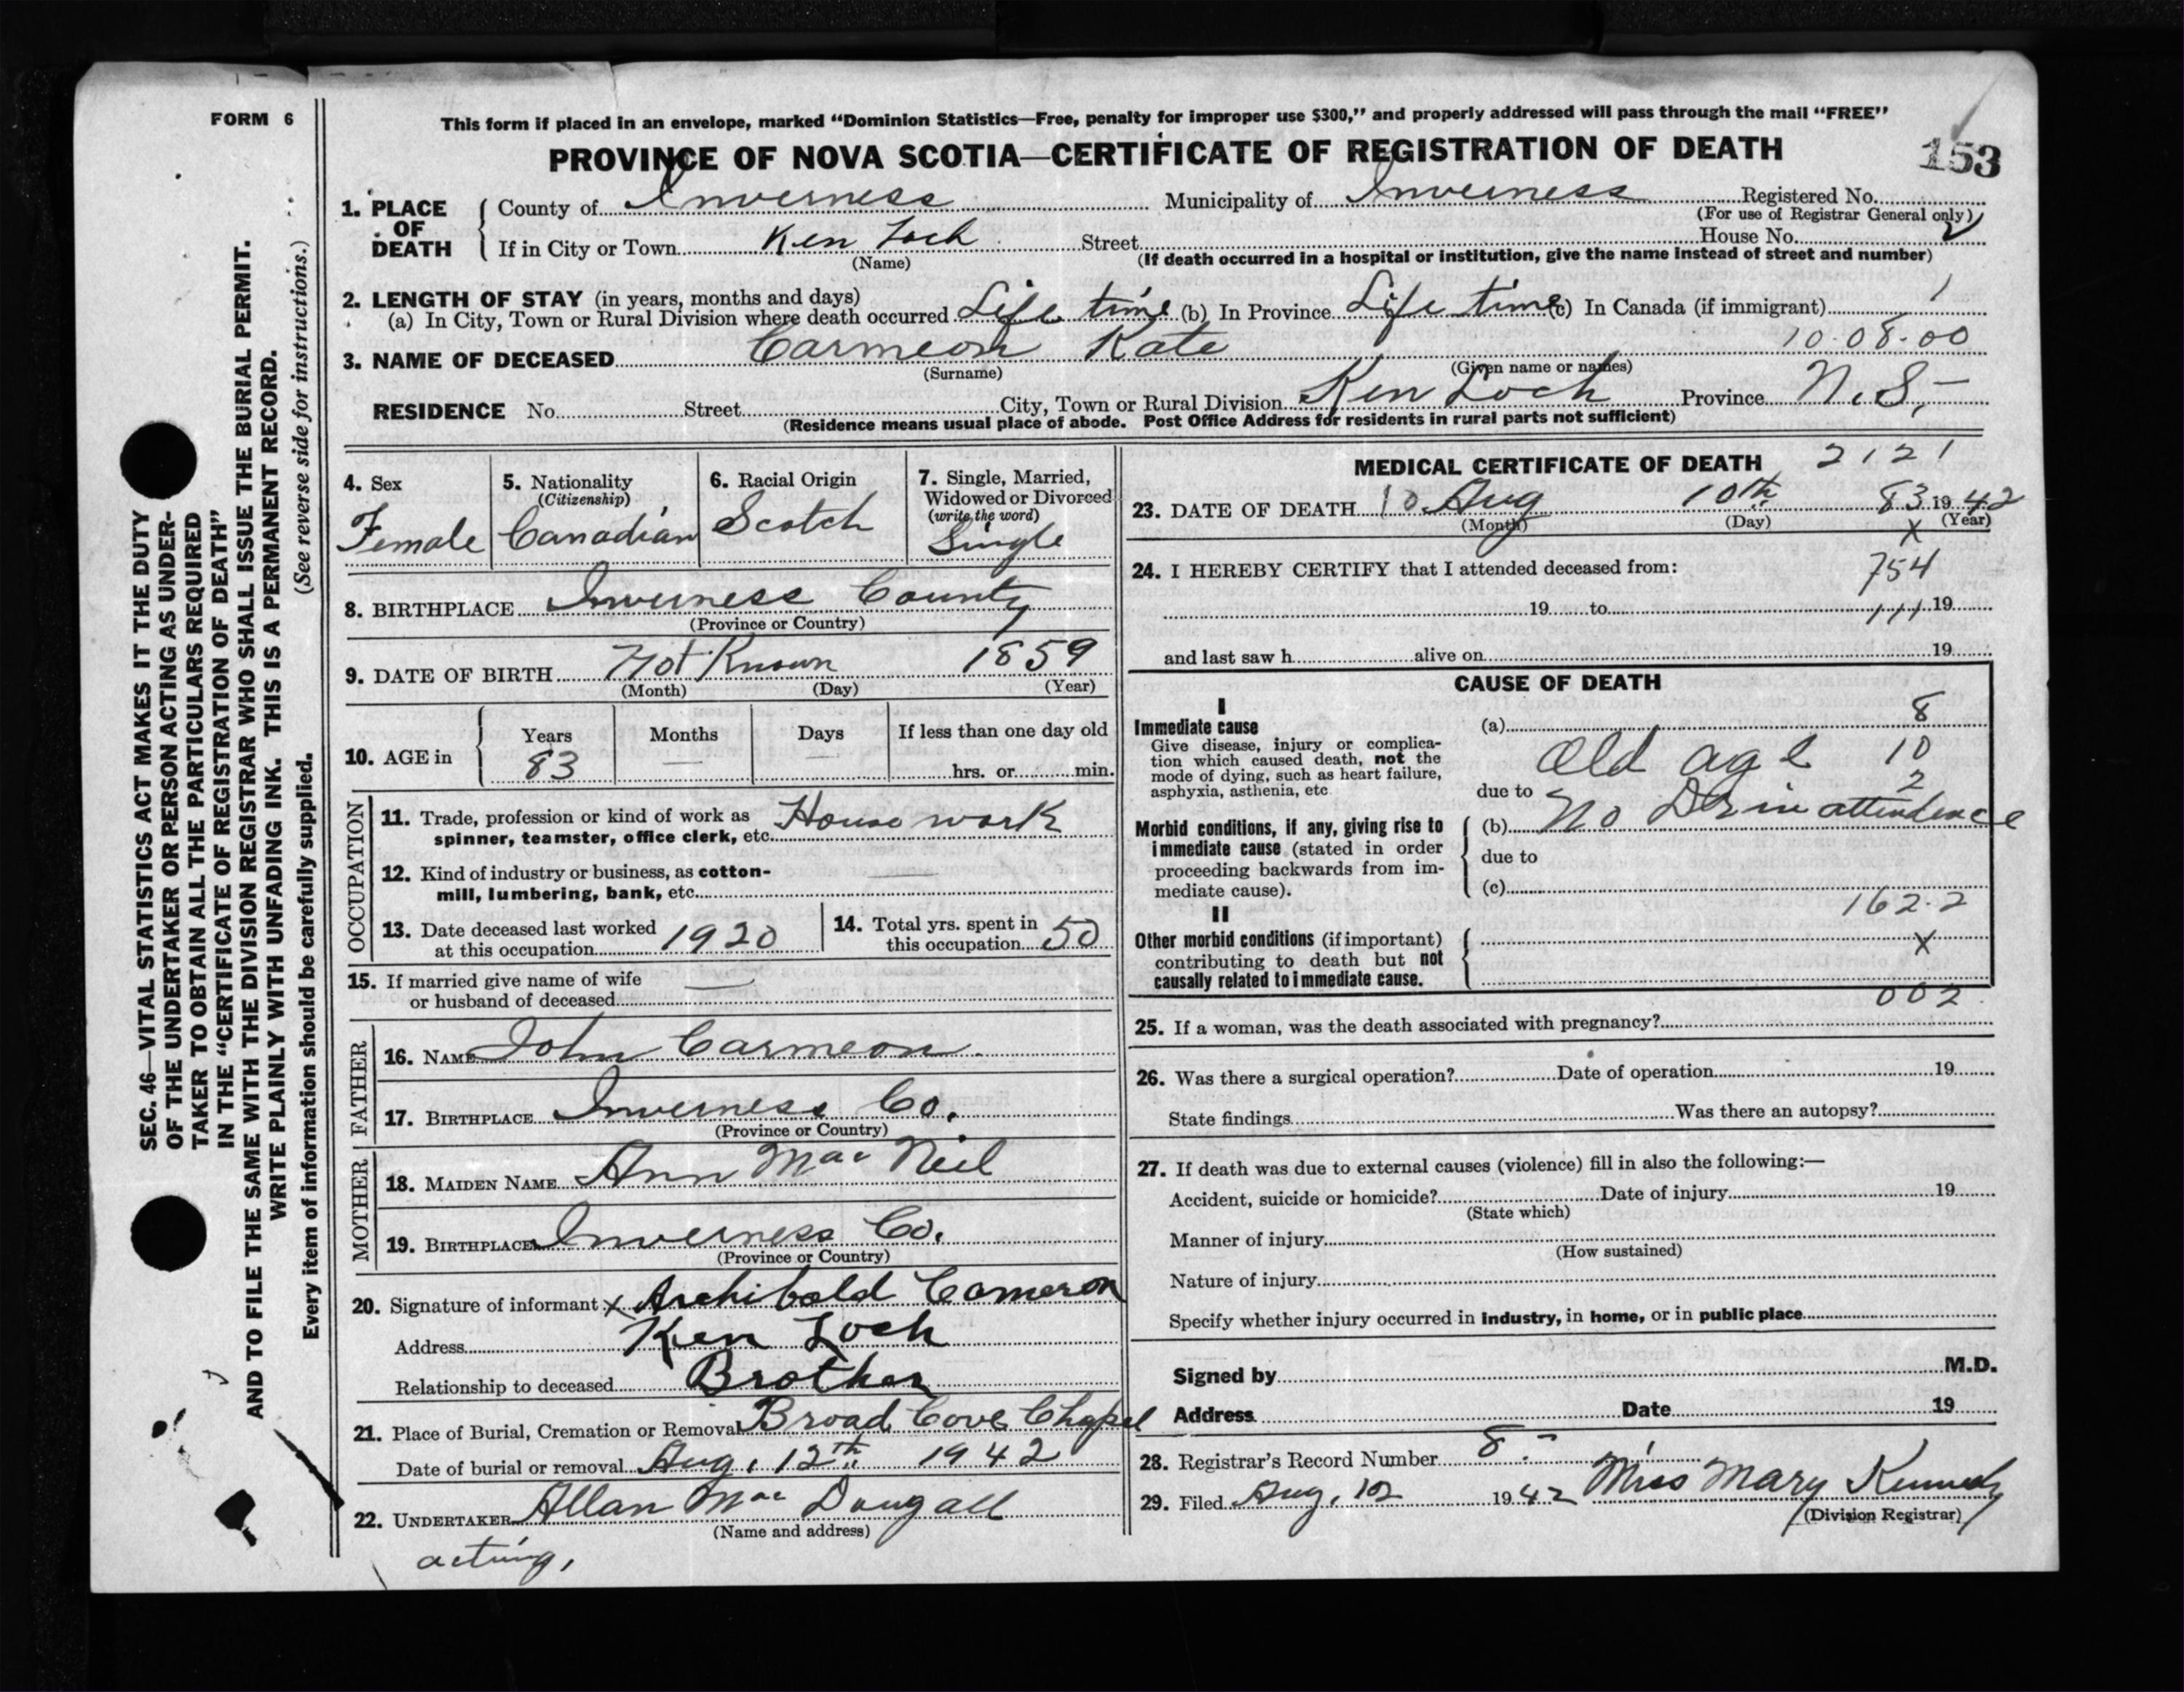 FORM 6
This form if placed in an envelope, marked “Dominion Statistics—Free, penalty for improper use $300,” and properly addressed will pass through the mail “FREE”
PROVINCE OF NOVA SCOTIA—CERTIFICATE OF REGISTRATION OF DEATH
153
1. PLACE OF DEATH
County of Inverness Municipality of Inverness Registered No.
(For use of Registrar General only)
If in City or Town Ken Loch Street House No.
(Name) (If death occurred in a hospital or institution, give the name instead of street and number)
2. LENGTH OF STAY (in years, months and days)
(a) In City, Town or Rural Division where death occurred Life time (b) In Province Life time (c) In Canada (if immigrant) 1
10-08-00
3. NAME OF DECEASED Carmeon Kate
(Surname) (Given name or names)
RESIDENCE No. Street City, Town or Rural Division Ken Loch Province N.S.
(Residence means usual place of abode. Post Office Address for residents in rural parts not sufficient)
4. Sex
Female
5. Nationality
(Citizenship)
Canadian
6. Racial Origin
Scotch
7. Single, Married,
Widowed or Divorced
(write the word)
Single
8. BIRTHPLACE Inverness County
(Province or Country)
9. DATE OF BIRTH Not Known 1859
(Month) (Day) (Year)
10. AGE in
Years Months Days If less than one day old
83 — — hrs. or min.
OCCUPATION
11. Trade, profession or kind of work as House work
spinner, teamster, office clerk, etc.
12. Kind of industry or business, as cotton-
mill, lumbering, bank, etc.
13. Date deceased last worked
at this occupation 1920
14. Total yrs. spent in
this occupation 50
15. If married give name of wife —
or husband of deceased
FATHER
16. NAME John Carmeon
17. BIRTHPLACE Inverness Co.
(Province or Country)
MOTHER
18. MAIDEN NAME Ann Mac Neil
19. BIRTHPLACE Inverness Co.
(Province or Country)
20. Signature of informant x Archibald Cameron
Address Ken Loch
Relationship to deceased Brother
21. Place of Burial, Cremation or Removal Broad Cove Chapel
Date of burial or removal Aug. 12th 1942
22. UNDERTAKER Allan Mac Dougall
(Name and address)
acting,
MEDICAL CERTIFICATE OF DEATH 2121
23. DATE OF DEATH 10 Aug 10th 83 1942
(Month) (Day) (Year)
x
24. I HEREBY CERTIFY that I attended deceased from: 754
19 to 111 19
and last saw h alive on 19
CAUSE OF DEATH
I
Immediate cause
Give disease, injury or complica-
tion which caused death, not the
mode of dying, such as heart failure,
asphyxia, asthenia, etc
(a) 8
Old age 10
due to 2
Morbid conditions, if any, giving rise to
immediate cause (stated in order
proceeding backwards from im-
mediate cause).
(b) No Dr in attendence
due to
(c)
162.2
II
Other morbid conditions (if important)
contributing to death but not
causally related to immediate cause.
x
002
25. If a woman, was the death associated with pregnancy?
26. Was there a surgical operation? Date of operation 19
State findings Was there an autopsy?
27. If death was due to external causes (violence) fill in also the following:—
Accident, suicide or homicide? Date of injury 19
(State which)
Manner of injury
(How sustained)
Nature of injury
Specify whether injury occurred in industry, in home, or in public place
Signed by M.D.
Address Date 19
28. Registrar's Record Number 8
29. Filed Aug. 12 1942 Miss Mary Kennedy
(Division Registrar)
SEC. 46—VITAL STATISTICS ACT MAKES IT THE DUTY
OF THE UNDERTAKER OR PERSON ACTING AS UNDER-
TAKER TO OBTAIN ALL THE PARTICULARS REQUIRED
IN THE “CERTIFICATE OF REGISTRATION OF DEATH”
AND TO FILE THE SAME WITH THE DIVISION REGISTRAR WHO SHALL ISSUE THE BURIAL PERMIT.
WRITE PLAINLY WITH UNFADING INK. THIS IS A PERMANENT RECORD.
(See reverse side for instructions.)
Every item of information should be carefully supplied.